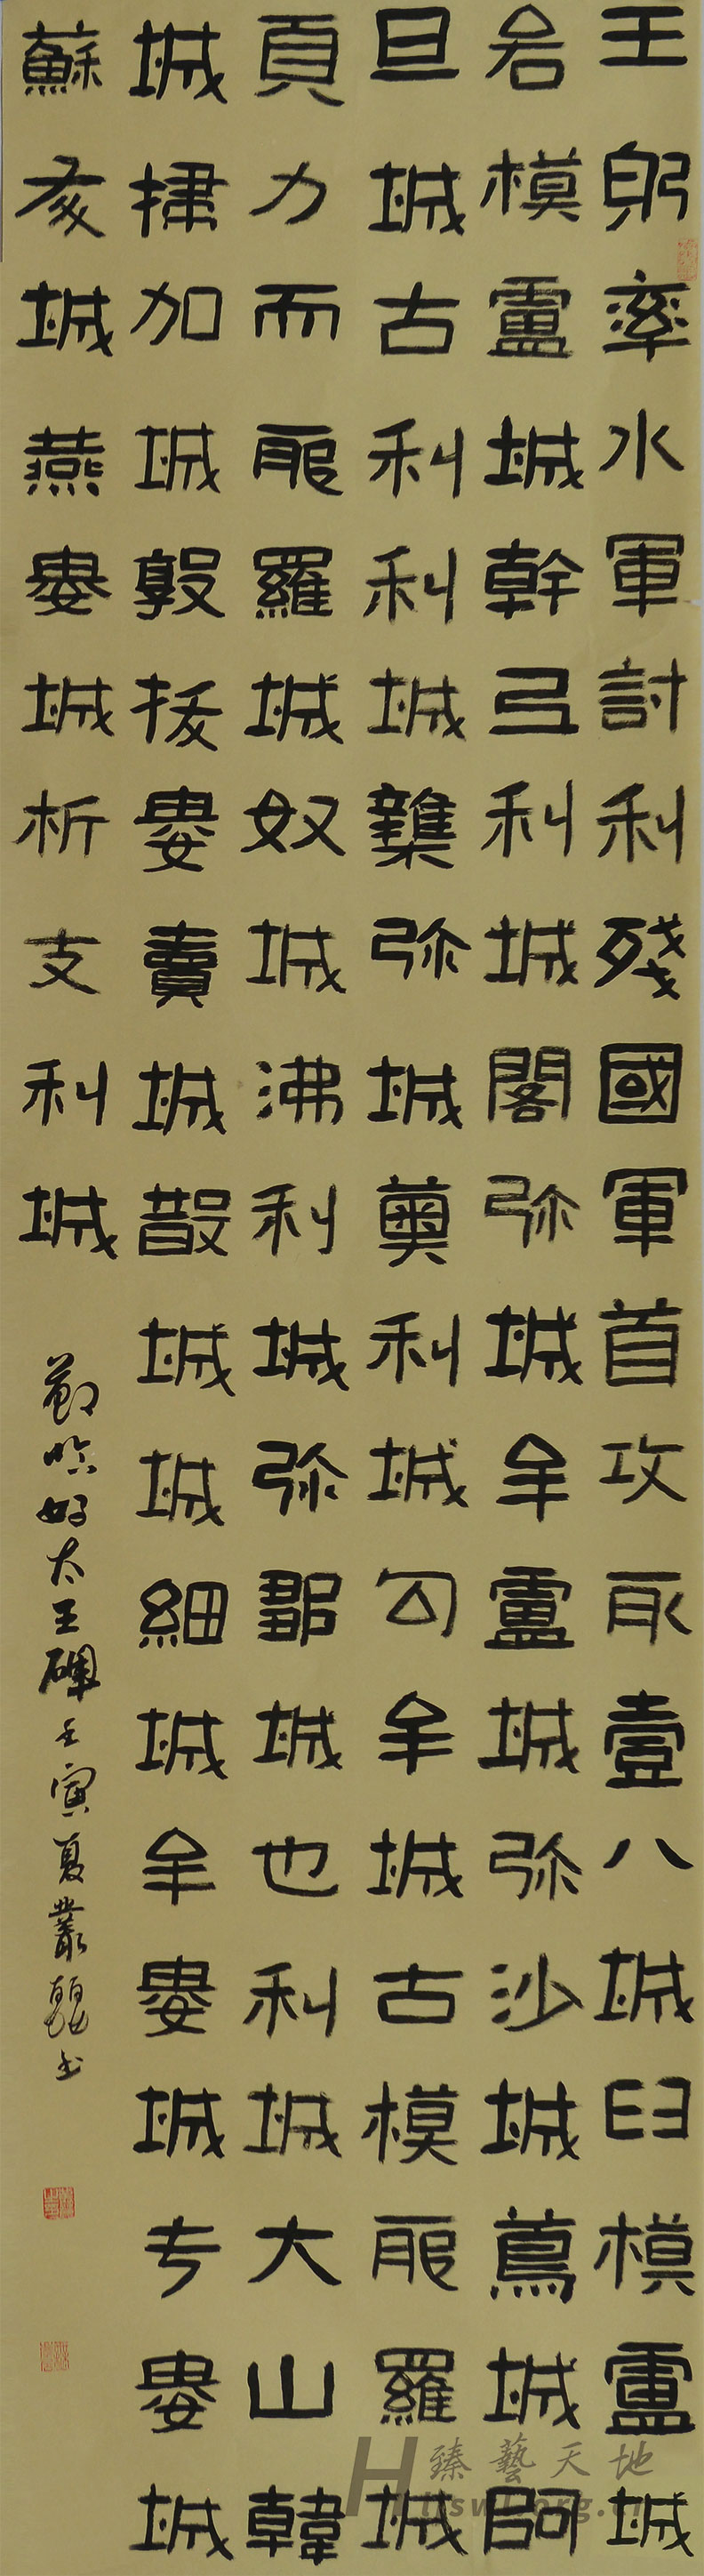 王躬率水軍討利殘國軍首攻取壹八城臼模盧城
各模盧城幹弖利城閣弥城牟盧城弥沙城蔦城阿
旦城古利利城雜弥城奧利城勾牟城古模耶羅城
頁力而耶羅城奴城沸利城弥鄒城也利城大山韓
城掃加城敦拔婁賣城散城城細城牟婁城亏婁城
蘇灰城燕婁城析支利城
節臨好太王碑壬寅夏叢书
臻藝天地